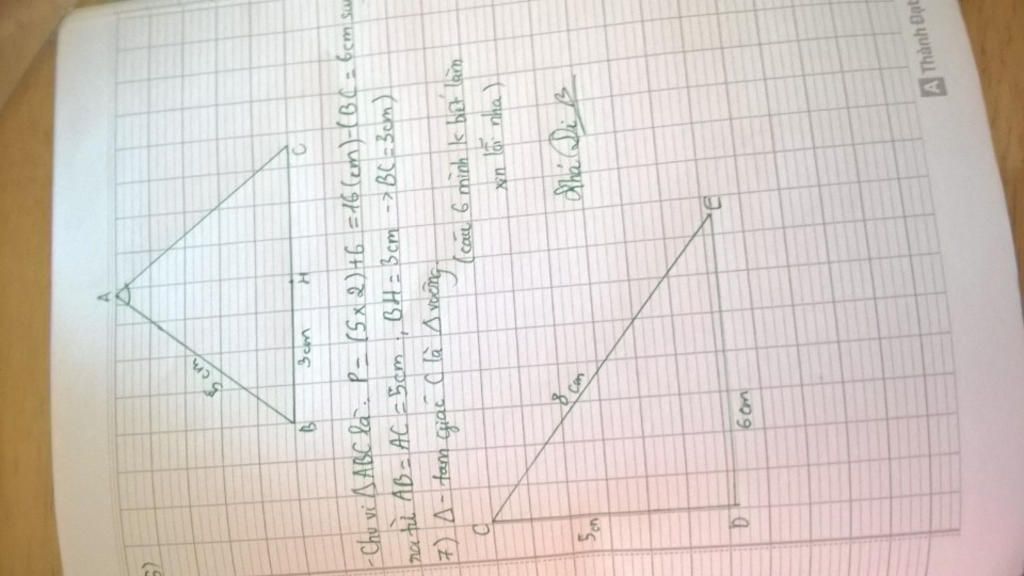 5)
A
5cm
B
3cm
H
C
- Chu vi ΔABC là: P = (5 x 2) + 6 = 16 (cm) - (BC = 6cm su
ra từ AB = AC = 5cm; BH = 3cm -> BC = 3cm)
7) Δ - tam giác C là Δ vuông.
(câu 6 mình k biết làm
xn lỗi nha)
C
5cm
8cm
D
6cm
E
A Thành Đạt